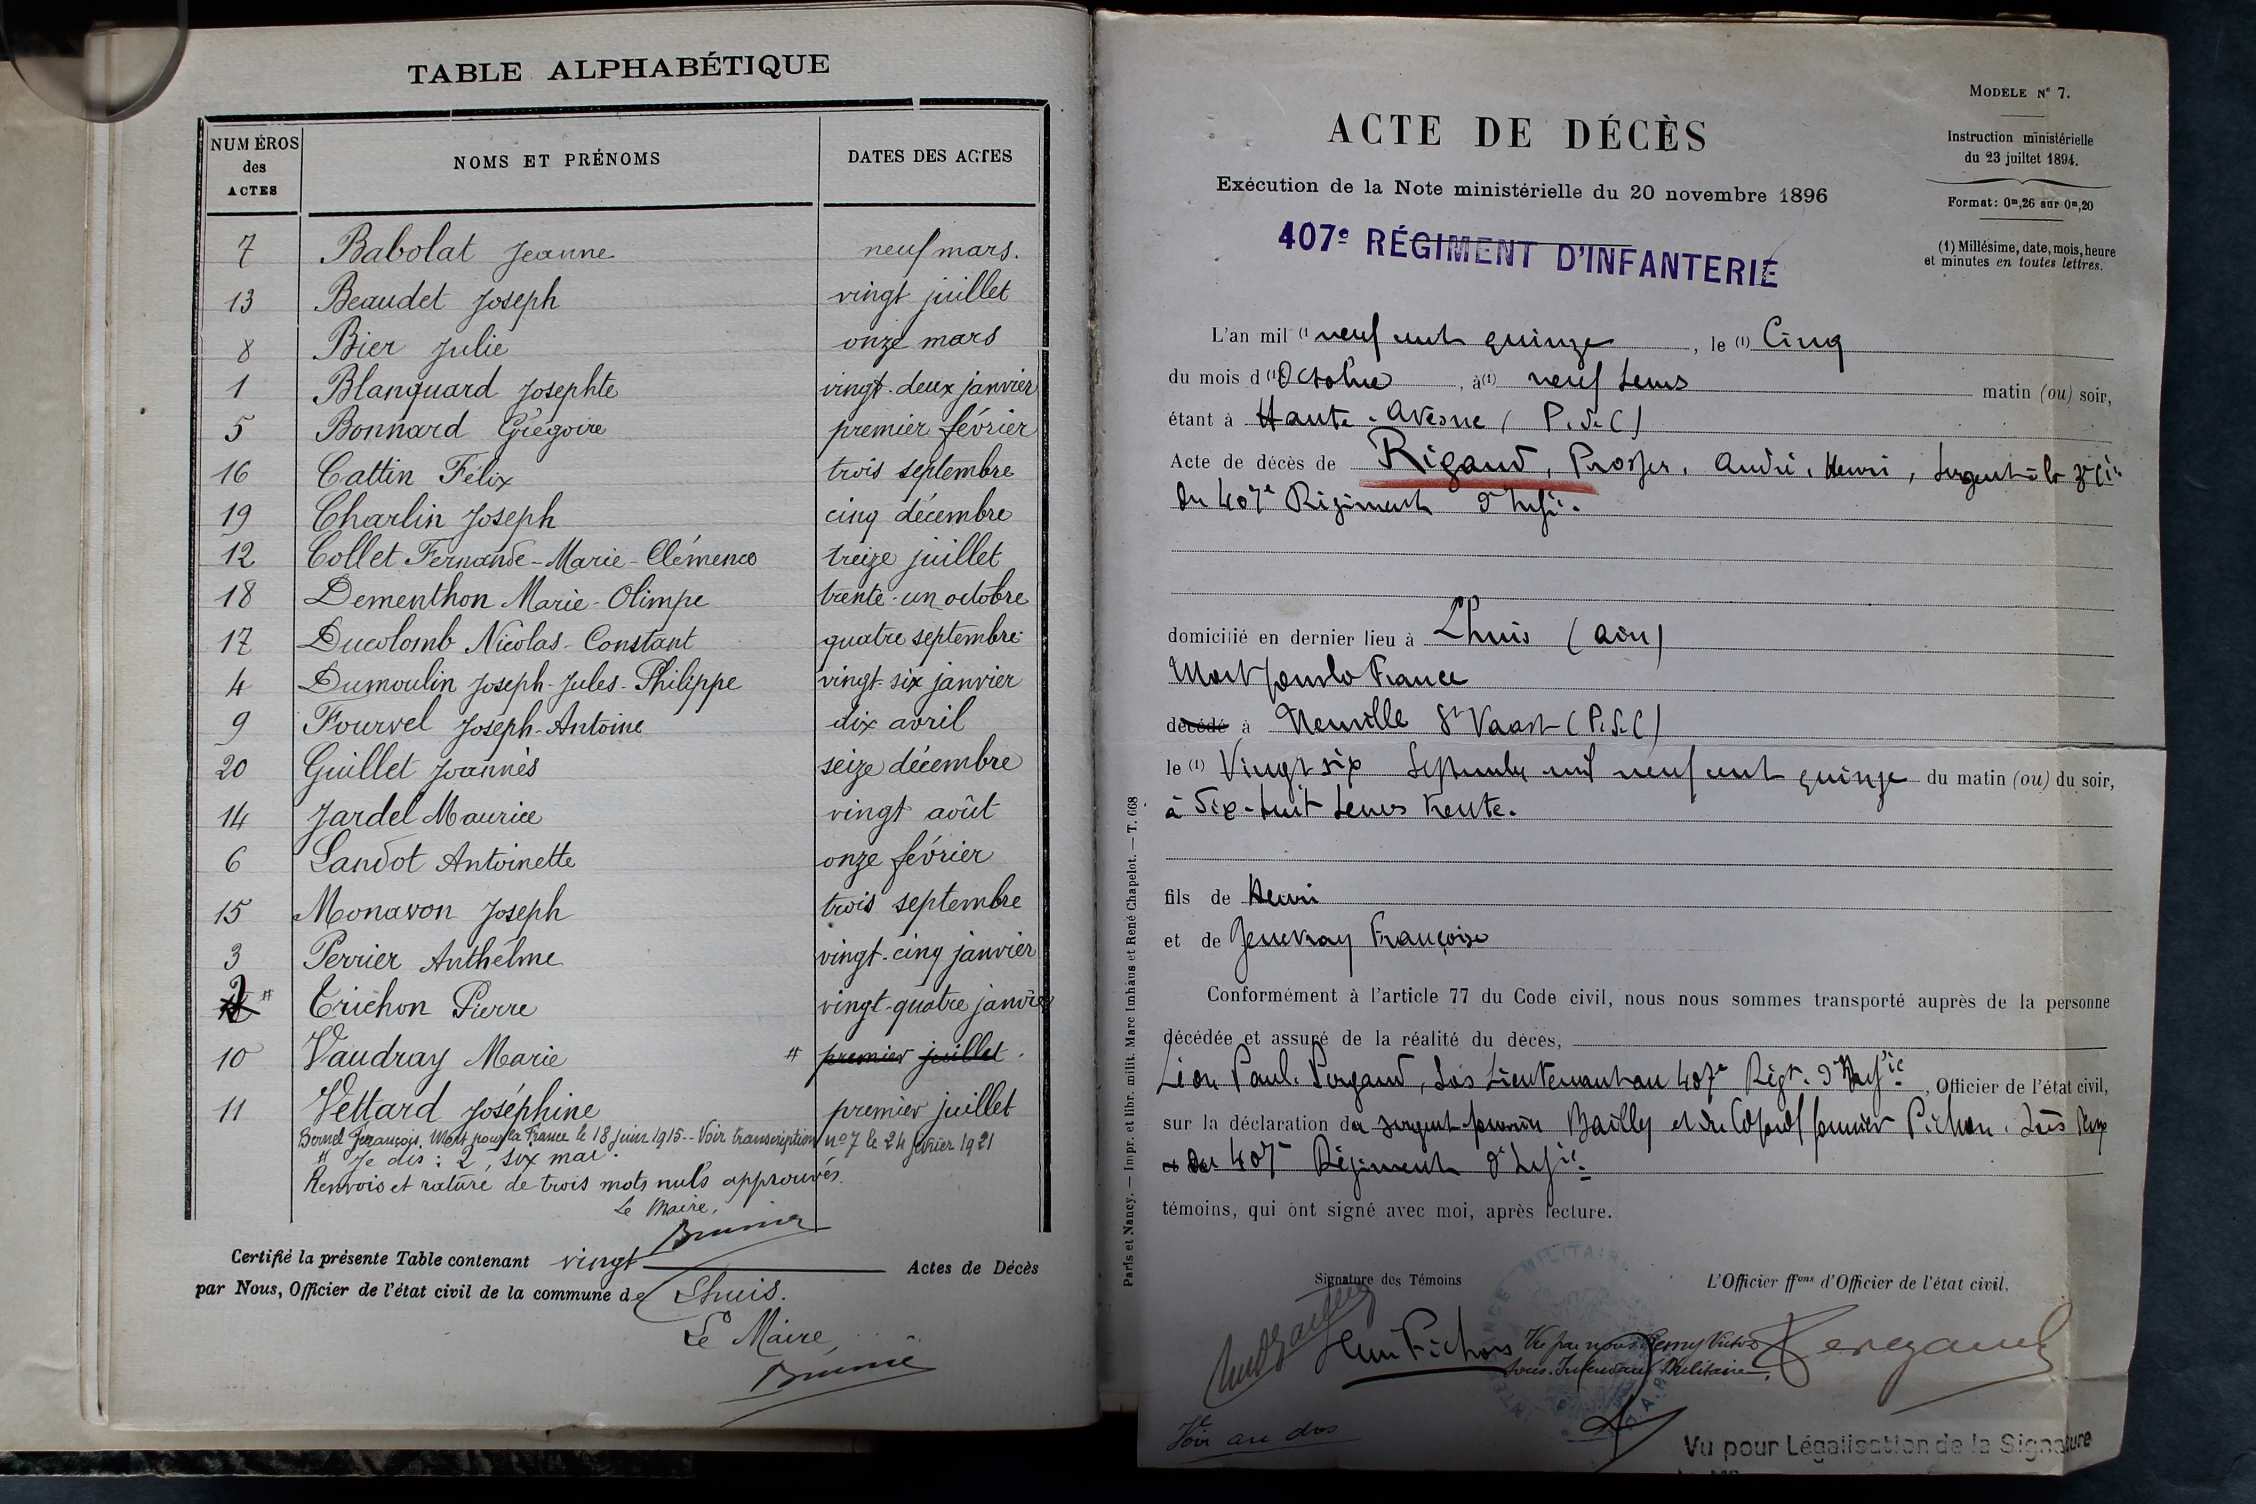 TABLE ALPHABÉTIQUE
NUMÉROS des ACTES NOMS ET PRÉNOMS DATES DES ACTES
7 Babolat Jeanne neuf mars.
13 Beaudet Joseph vingt juillet
8 Bier Julie onze mars
1 Blanquard Josephte vingt-deux janvier
5 Bonnard Grégoire premier février
16 Cattin Félix trois septembre
19 Charlin Joseph cinq décembre
12 Collet Fernande-Marie-Clémence treize juillet
18 Dementhon Marie-Olimpe trente-un octobre
17 Ducolomb Nicolas-Constant quatre septembre
4 Dumoulin Joseph-Jules-Philippe vingt-six janvier
9 Fourvel Joseph-Antoine dix avril
20 Guillet Joannès seize décembre
14 Jardel Maurice vingt août
6 Landot Antoinette onze février
15 Monavon Joseph trois septembre
3 Perrier Anthelme vingt-cinq janvier
2 # Trichon Pierre vingt-quatre janvier
10 Vaudray Marie # premier juillet.
11 Vettard Joséphine premier juillet
François, Mort pour la France le 18 juin 1915 - Voir transcription nº 7 le 24 février 1921
# Je dis : 2, six mai.
Renvois et rature de trois mots nuls approuvés.
Le Maire,
Certifié la présente Table contenant vingt Actes de Décès
par Nous, Officier de l'état civil de la commune de Lhuis.
Le Maire
MODÈLE Nº 7.
Instruction ministérielle
du 23 juillet 1894.
Format: 0m,26 sur 0m,20
(1) Millésime, date, mois, heure
et minutes en toutes lettres.
ACTE DE DÉCÈS
Exécution de la Note ministérielle du 20 novembre 1896
407e RÉGIMENT D'INFANTERIE
L'an mil (1) neuf cent quinze, le (1) Cinq
du mois d (1) Octobre, à (1) neuf heures matin (ou) soir,
étant à Haute-Avesne (P.d.C)
Acte de décès de Rigaud, Prosper, André, Henri, Sergent à la Cie
du 407e Régiment d'Infie.
domicilié en dernier lieu à Lhuis (Ain)
Mort pour la France
décédé à Neuville St Vaast (P.d.C)
le (1) Vingt six Septembre mil neuf cent quinze du matin (ou) du soir,
à Dix-huit heures trente.
fils de Henri
et de Jenevray Françoise
Conformément à l'article 77 du Code civil, nous nous sommes transporté auprès de la personne
décédée et assuré de la réalité du décès,
Léon Paul Pergaud, Sous Lieutenant au 407e Régt. d'Infie, Officier de l'état civil,
sur la déclaration du sergent fourrier Bailly et du Caporal fourrier Pichon,
407e Régiment d'Infie
témoins, qui ont signé avec moi, après lecture.
Signature des Témoins L'Officier ffons d'Officier de l'état civil.
Henri Pichon Vu par nous Remy Victor Pergaud
Sous-Intendant Militaire,
Voir au dos
Vu pour Légalisation de la Signature
Paris et Nancy. — Impr. et libr. milit. Marc Imhaus et René Chapelot. — T. 668